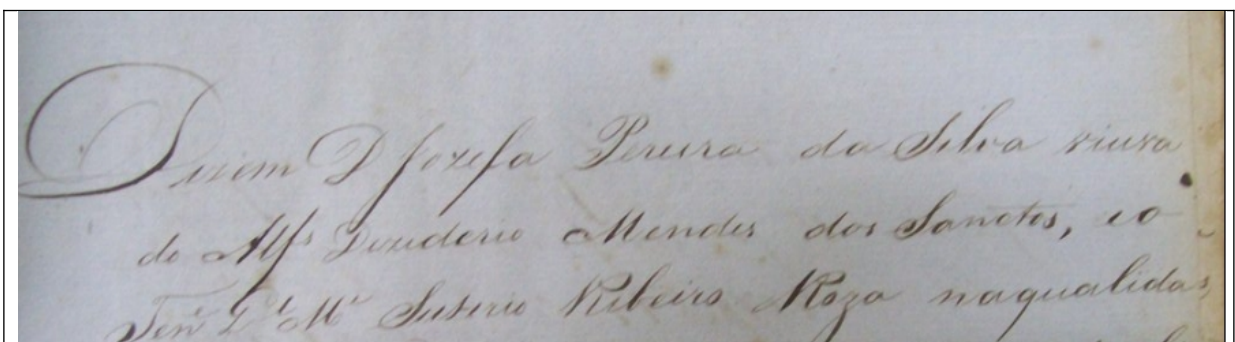 Dizem D Jozefa Pereira da Silva viuva
do Alfs Deziderio Mendes dos Sanctos, eo
Ten Ribeiro Roza naqualida